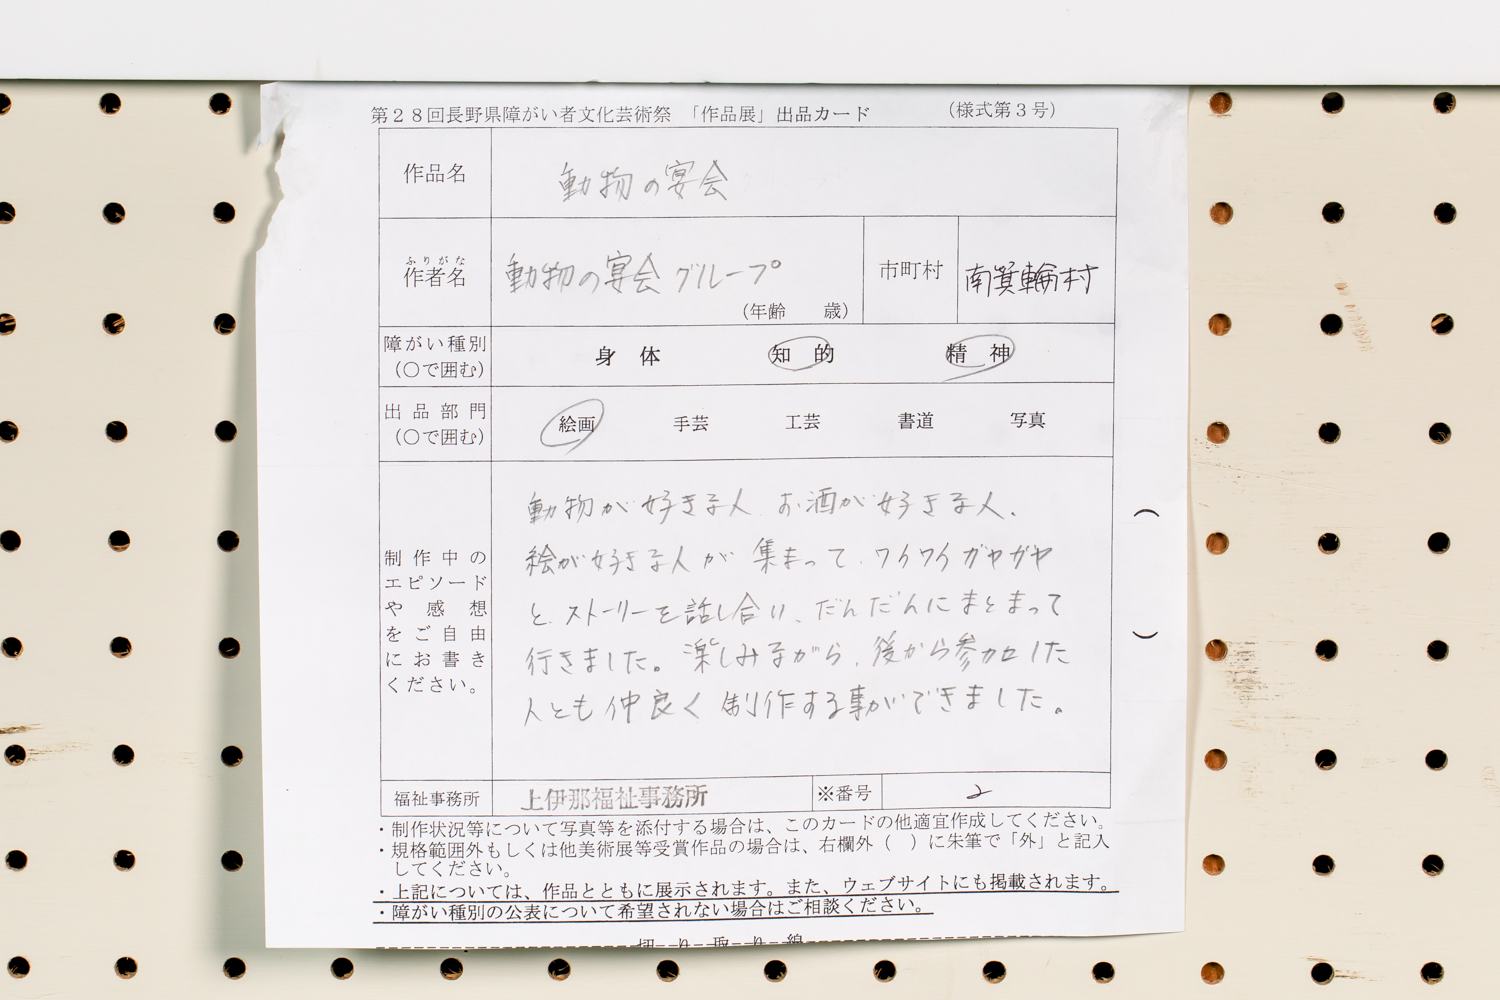 第28回長野県障がい者文化芸術祭 「作品展」出品カード （様式第3号）
作品名 動物の宴会
ふりがな
作者名 動物の宴会グループ
（年齢 歳）
市町村 南箕輪村
障がい種別
（〇で囲む）
身体 知的 精神
出品部門
（〇で囲む）
絵画 手芸 工芸 書道 写真
制作中の
エピソード
や感想
をご自由
にお書き
ください。
動物が好きな人 お酒が好きな人、
絵が好きな人が集まって、ワイワイガヤガヤ
と、ストーリーを話し合い、だんだんにまとまって
行きました。楽しみながら、後から参加した
人とも仲良く制作する事ができました。
（ ）
福祉事務所 上伊那福祉事務所 ※番号 2
・制作状況等について写真等を添付する場合は、このカードの他適宜作成してください。
・規格範囲外もしくは他美術展等受賞作品の場合は、右欄外（ ）に朱筆で「外」と記入
してください。
・上記については、作品とともに展示されます。また、ウェブサイトにも掲載されます。
・障がい種別の公表について希望されない場合はご相談ください。
切り取り線